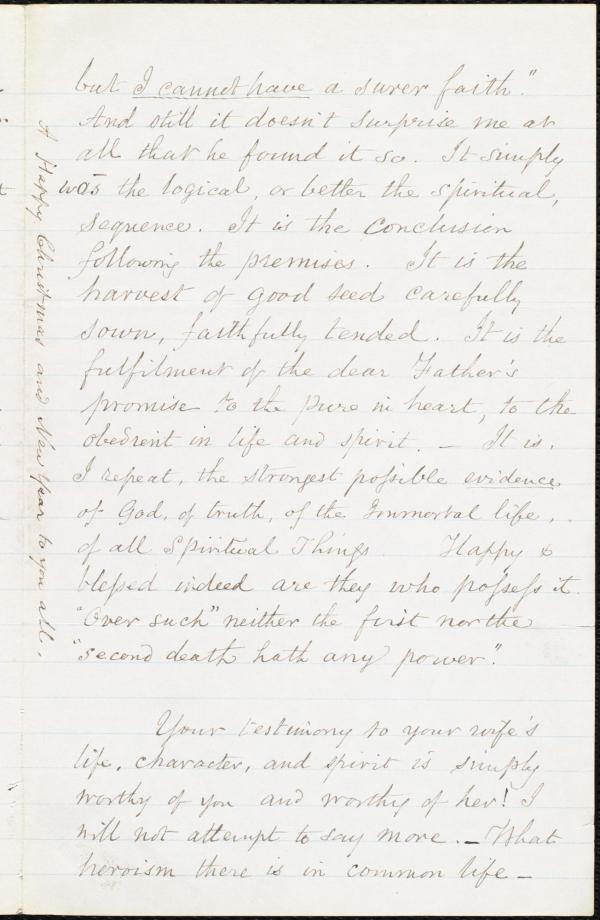 but I cannot have a surer faith."
And still it doesn't surprise me at
all that he found it so. It simply
was the logical, or better the spiritual,
sequence. It is the conclusion
following the premises. It is the
harvest of good seed carefully
sown, faithfully tended. It is the
fulfilment of the dear Father's
promise to the pure in heart, to the
obedient in life and spirit. — It is,
I repeat, the strongest possible evidence
of God, of truth, of the Immortal life,
of all Spiritual Things. Happy &
blessed indeed are they who possess it.
"Over such" neither the first nor the
"second death hath any power".
Your testimony to your wife's
life, character, and spirit is simply
worthy of you and worthy of her! I
will not attempt to say more. — What
heroism there is in common life —
A Happy Christmas and New Year to you all.